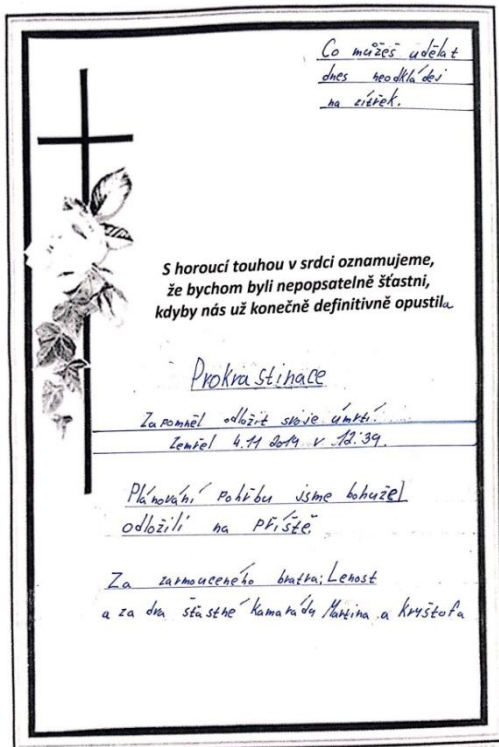 Co můžeš udělat
dnes neodkládej
na zítřek.
S horoucí touhou v srdci oznamujeme,
že bychom byli nepopsatelně šťastni,
kdyby nás už konečně definitivně opustila
Prokrastinace
Zapomněl odložit svoje úmrtí.
Zemřel 4.11 2019 v 12:39.
Plánování Pohřbu jsme bohužel
odložili na příště.
Za zarmouceného bratra; Lenost
a za dva šťastné kamarády Martina a Kryštofa